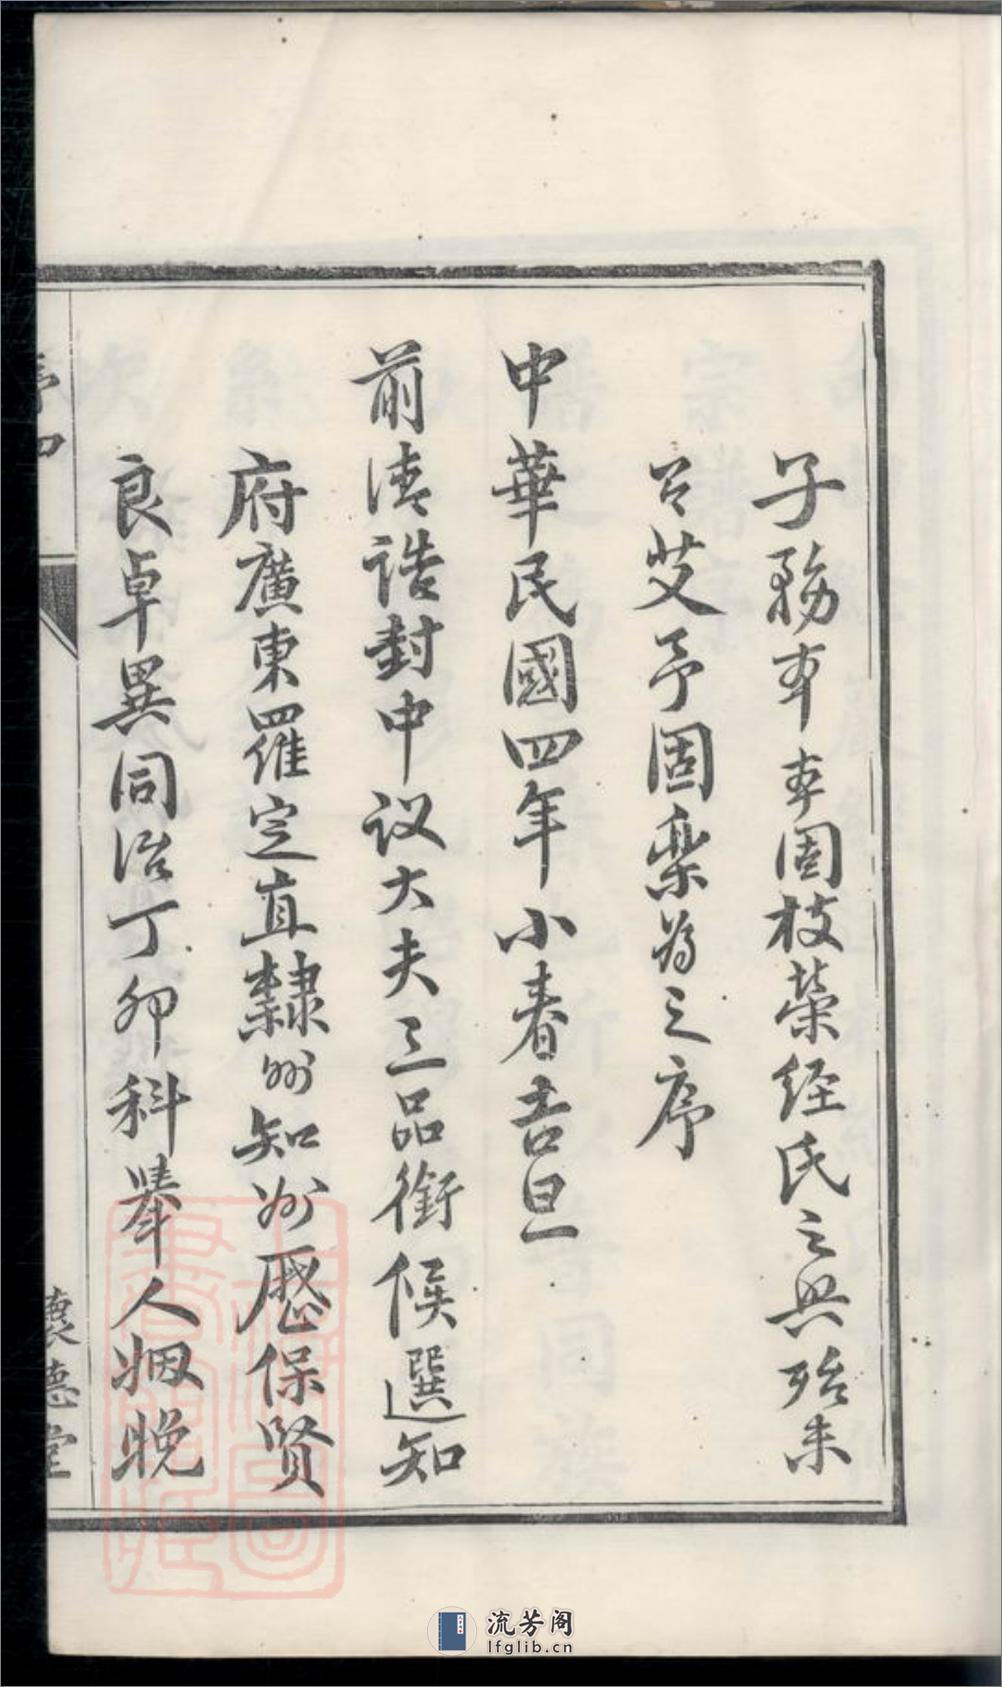 子務本本固枝榮經氏之興殆未
可艾予固樂為之序
中華民國四年小春吉旦
前清誥封中议大夫三品銜候選知
府廣東羅定直隸州知州歷保賢
良卓異同治丁卯科舉人姻晚
序四
懷德堂
流芳阁
lfglib.cn